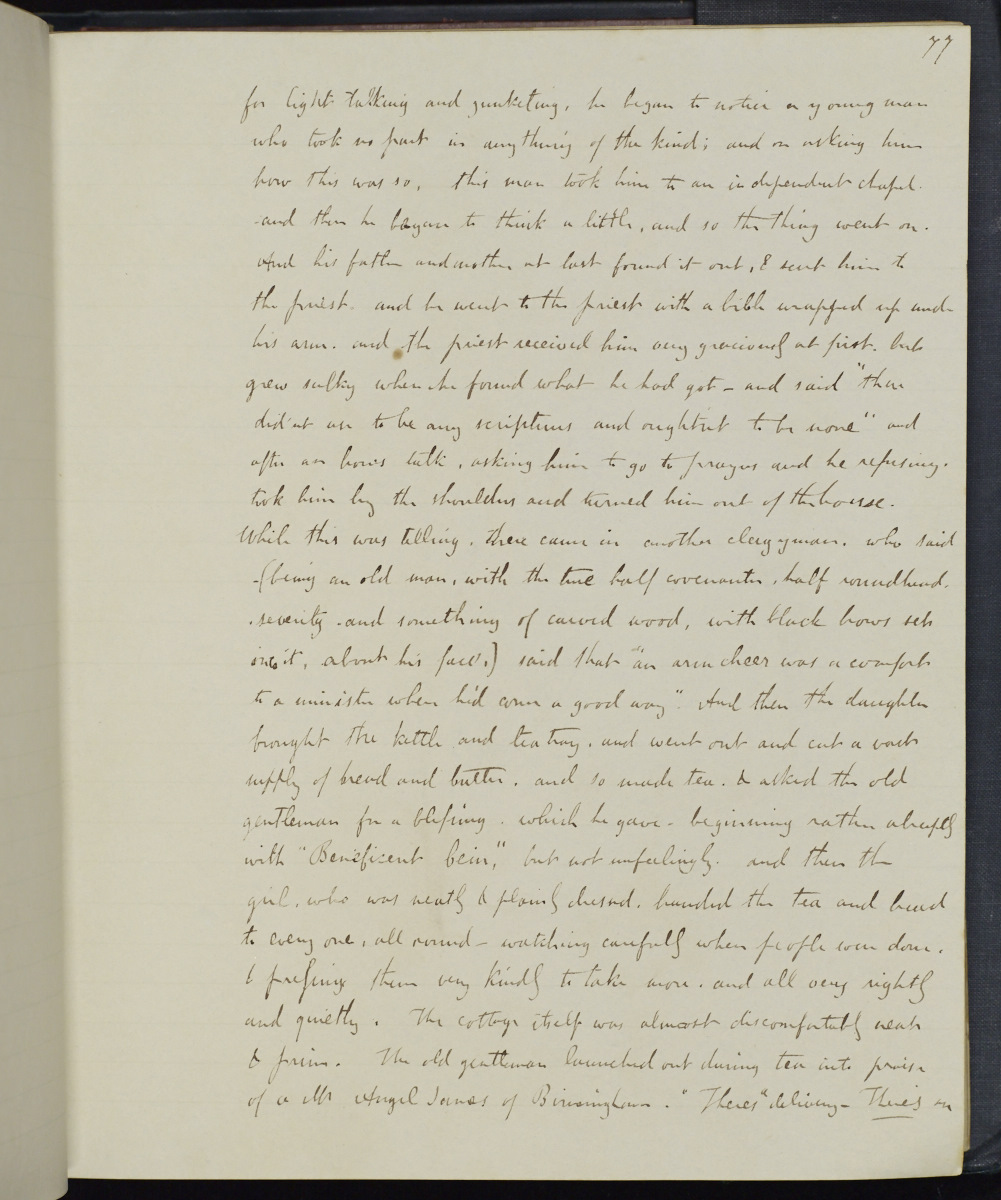 77
for light talking and junketing, he began to notice a young man
who took no part in anything of the kind; and on asking him
how this was so, this man took him to an independent chapel.
and then he began to think a little, and so the thing went on.
And his father and mother at last found it out, & sent him to
the priest. and he went to the priest with a bible wrapped up under
his arm. and the priest received him very graciously at first. but
grew sulky when he found what he had got - and said "there
did'nt use to be any scriptures and oughtnt to be none" and
after an hours talk, asking him to go to prayers and he refusing.
took him by the shoulders and turned him out of the house.
While this was telling. there came in another clergyman. who said
(being an old man, with the true half covenanter, half roundhead.
severity - and something of carved wood, with black brows set
into it, about his face.) said that "an arm cheer was a comfort
to a minister when he'd come a good way". And then the daughter
brought the kettle and tea tray. and went out and cut a vast
supply of bread and butter. and so made tea. & asked the old
gentleman for a blessing. which he gave - beginning rather abruptly
with "Beneficent bein," but not unfeelingly. and then the
girl, who was neatly & plainly dressed. handed the tea and bread
to every one, all round - watching carefully when people were done.
& pressing them very kindly to take more. and all very rightly
and quietly. The cottage itself was almost discomfortably neat
& prim. The old gentleman launched out during tea into praise
of a Mr Angel James of Birmingham. "Theres" delivery - There's an